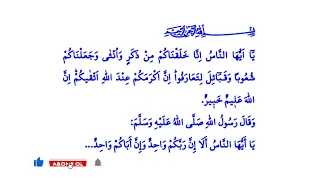 بِسْمِ اللهِ الرَّحْمٰنِ الرَّحِيمِ
يَٓا اَيُّهَا النَّاسُ اِنَّا خَلَقْنَاكُمْ مِنْ ذَكَرٍ وَاُنْثٰى وَجَعَلْنَاكُمْ
شُعُوبًا وَقَبَٓائِلَ لِتَعَارَفُوا اِنَّ اَكْرَمَكُمْ عِنْدَ اللهِ اَتْقٰيكُمْ اِنَّ
اللهَ عَل۪يمٌ خَب۪يرٌ.
وَقَالَ رَسُولُ اللهِ صَلَّى اللهُ عَلَيْهِ وَسَلَّمَ:
يَا أَيُّهَا النَّاسُ أَلَا إِنَّ رَبَّكُمْ وَاحِدٌ وَإِنَّ أَبَاكُمْ وَاحِدٌ...
ABONE OL